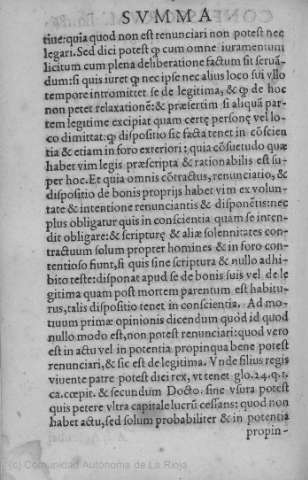 SVMMA
tiue: quia quod non est renunciari non potest nec
legari. Sed dici potest ꝙ cum omne iuramentum
licitum cum plena deliberatione factum sit seruã-
dum: si quis iuret ꝙ nec ipse nec alius loco sui vllo
tempore intromittet se de legitima, & ꝙ de hoc
non petet relaxationẽ: & præsertim si aliquã par-
tem legitime excipiat quam certę personę vel lo-
co dimittat. ꝙ dispositio sic facta tenet in cõscien
tia & etiam in foro exteriori: quia cõsuetudo quæ
habet vim legis præscripta & rationabilis est su-
per hoc. Et quia omnis cõtractus, renunciatio, &
dispositio de bonis proprijs habet vim ex volun-
tate & intentione renunciantis & disponẽtis: nec
plus obligatur quis in conscientia quam se inten-
dit obligare: & scripturę & aliæ solennitates con-
tractuum solum propter homines & in foro con-
tentioso fiunt, si quis sine scriptura & nullo adhi-
bito teste: disponat apud se de bonis suis vel de le
gitima quam post mortem parentum est habitu-
rus, talis dispositio tenet in conscientia. Ad mo-
tiuum primæ opinionis dicendum quòd id quod
nullo modo est, non potest renunciari: quod vero
est in actu vel in potentia propinqua bene potest
renunciari, & sic est de legitima. Vnde filius regis
viuente patre potest dici rex, vt tenet glo. 24. q. 1.
ca. cœpit. & secundum Docto. sine vsura potest
quis petere vltra capitale lucrũ cessans: quod non
habet actu, sed solum probabiliter & in potentia
propin-
(c) Comunidad Autónoma de La Rioja